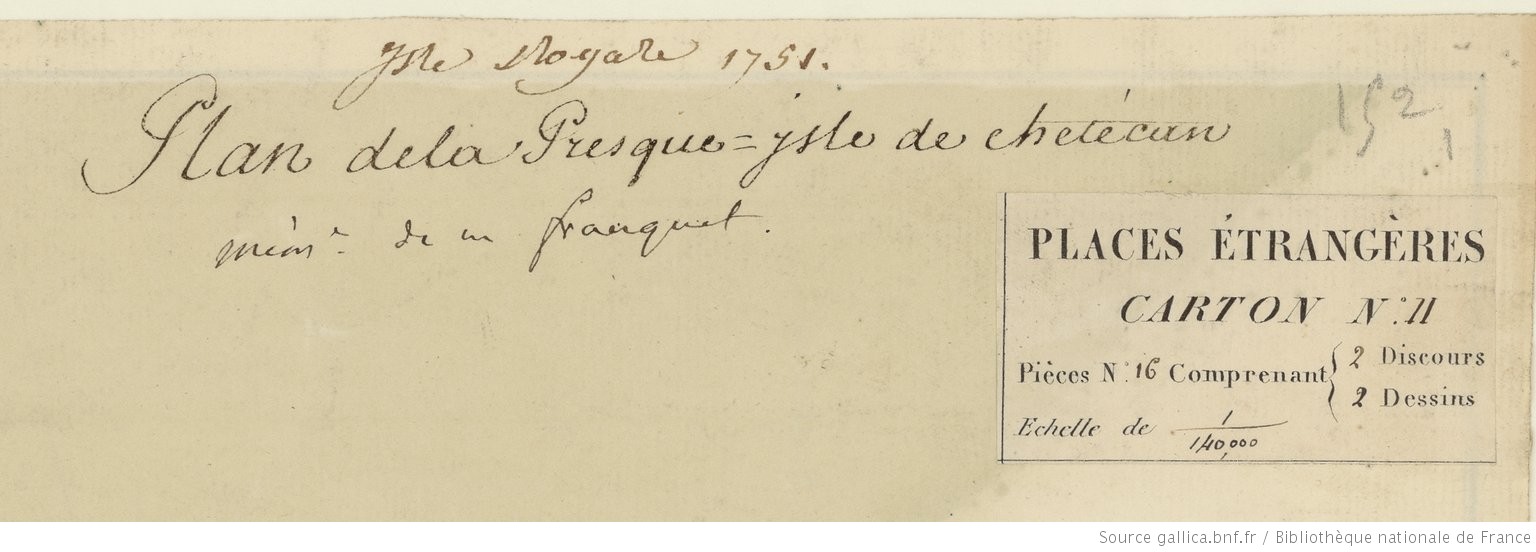 Isle Royale 1751.
Plan dela Presque=isle de chetécan
mém.re de m franquet.
152
1
PLACES ÉTRANGÈRES
CARTON N.º 11
Pièces N.º 16 Comprenant { 2 Discours
2 Dessins
Echelle de 1/140,000
Source gallica.bnf.fr / Bibliothèque nationale de France